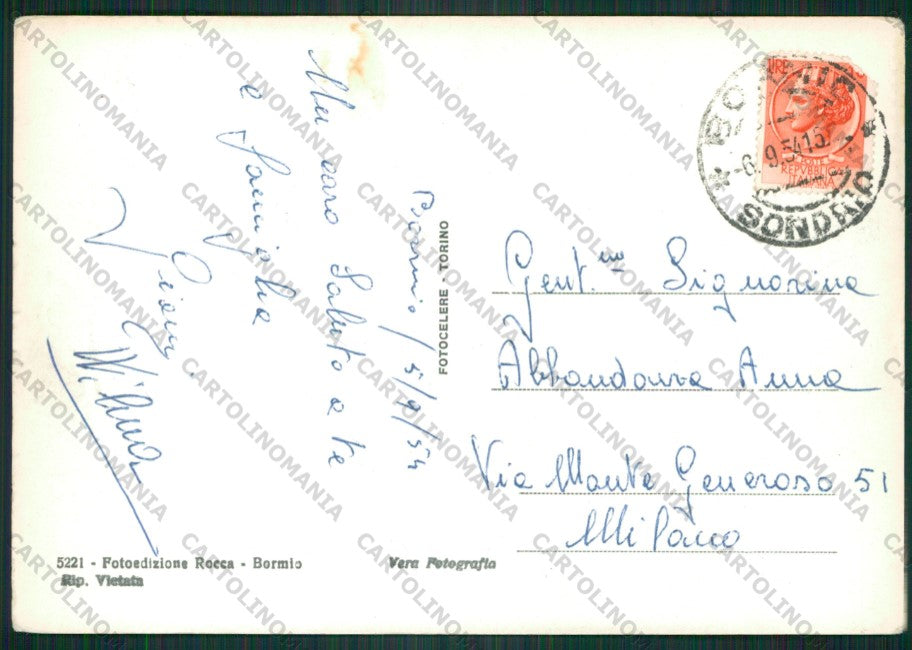 Bormio / 5/9/54
Un caro saluto a te
e famiglia
Gieny
Wilma
FOTOCELERE - TORINO
5221 - Fotoedizione Rocca - Bormio
Rip. Vietata
Vera Fotografia
BORMIO
-6.9.54.15
SONDRIO
LIRE
POSTE
REPVBBLICA
ITALIANA
Gent.ma Signorina
Abbandonza Anna
Via Monte Generoso 51
Milano
CARTOLINOMANIA